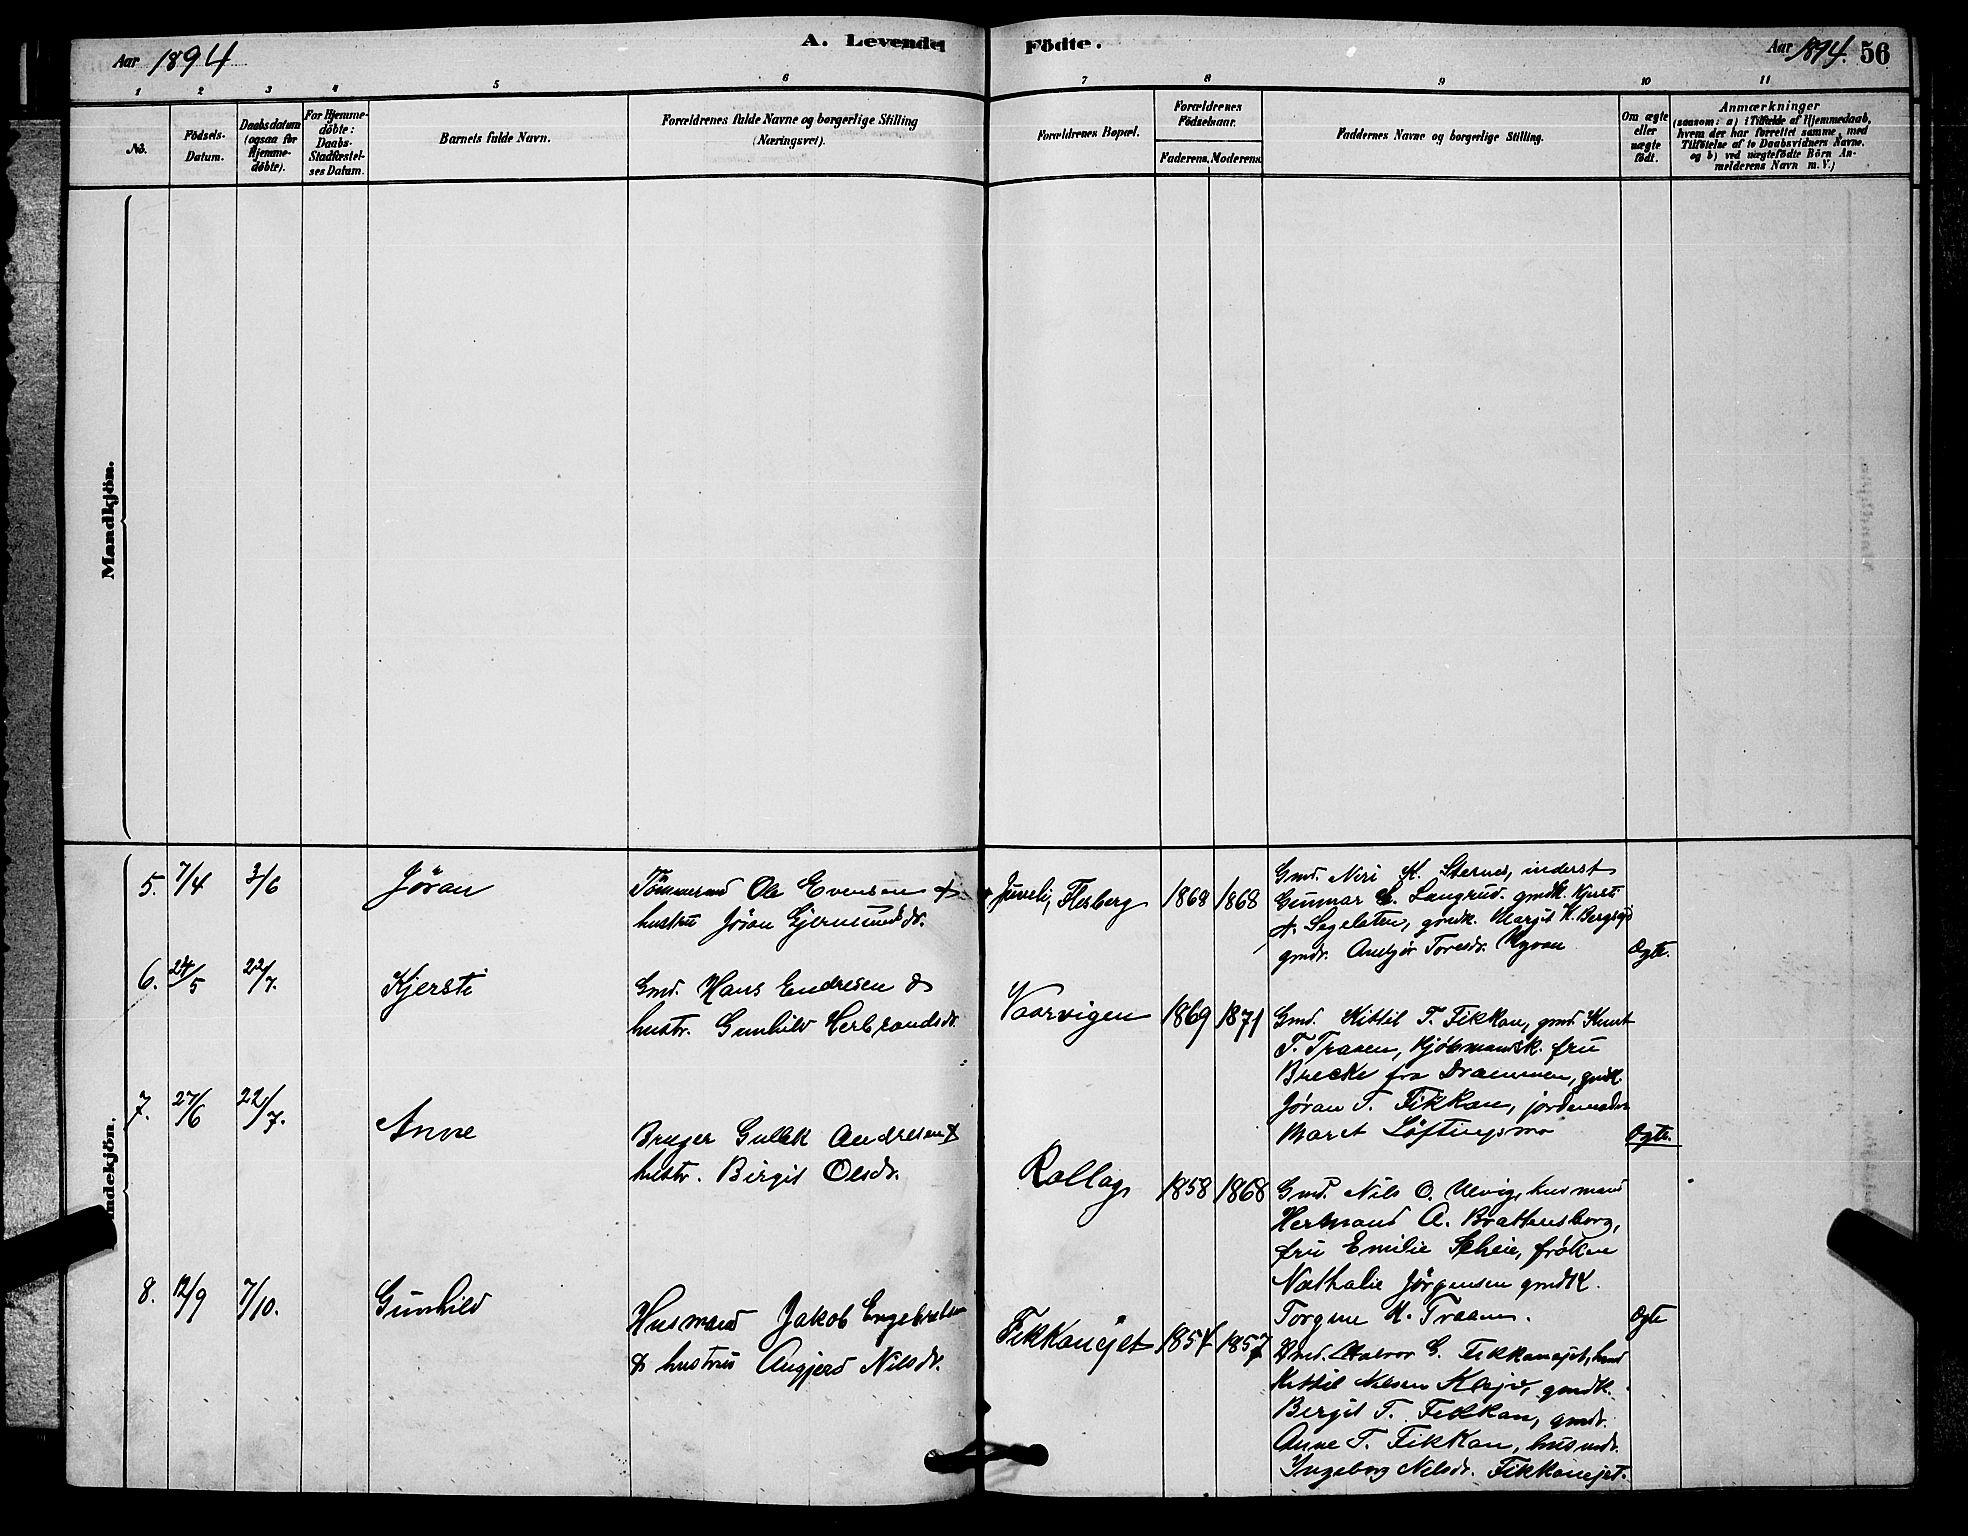 A. Levende
Födte.
Aar 1894
Aar 1894. 56
1 2 3 4 5 6 7 8 9 10 11
No.
Födsels-
Datum.
Daabsdatum
(ogsaa for
Hjemme-
døbte).
For Hjemme-
døbte:
Daabs-
Stadfæstel-
ses Datum.
Barnets fulde Navn.
Forældrenes fulde Navne og borgerlige Stilling
(Næringsvei).
Forældrenes Bopæl.
Forældrenes
Födselsaar.
Faderens. Moderens.
Faddernes Navne og borgerlige Stilling.
Om ægte
eller
uægte
födt.
Anmærkninger
(saasom: a) i Tilfælde af Hjemmedaab,
hvem der har forrettet samme, med
Tilföielse af to Daabsvidners Navne,
og b) ved uægtefödte Börn An-
melderens Navn m. V.)
Mandkjön.
indekjön.
5. 7/4 3/6 Jøran
Tømmermd Ole Evensen &
hustru Jøran Gjermundsdr.
Juveli, Flesberg 1868 1868
Gmd. Niri H. Sternes, inderst
Gunnar Langrud. gmdk. Kjersti
Segelsten, gmdk. Margit H.
gmdr. Toresdr. Myran
Ægte.
6. 24/5 22/7. Kjersti
Gmd. Hans Endresen &
hustr. Gunhild Herbrandsdr.
Vaarvigen 1869 1871
Gmd. Kittil T. Fikkan, gmd. Knut
T. Traaen, Kjøbmandsk. fru
Brecke fra Drammen, gmdk.
Jøran T. Fikkan, jordemoder
Maret Løftingsmo
Ægte.
7. 27/6 22/7. Anne
Bruger Gullek Andresen &
hustr. Birgit Olsdr.
Rollag 1858 1868
Gmd. Nils O. Ulvig, husmand
Hermand A. Brattensborg,
fru Emilie Scheie, frøken
Nathalie Jørgensen gmdk.
Torgune H. Traaen.
Ægte
8. 12/9 7/10. Gunhild
Husmand Jakob Engebretsen
& hustru Angjerd Nilsdr.
Fikkanejet 1854 1857
Halvor G. Fikkanejet,
Kittil Nilsen gmdk.
Birgit T. Fikkan, gmdr.
Anne T. Fikkan, husmdr.
Ingeborg Nilsdr. Fikkanejet.